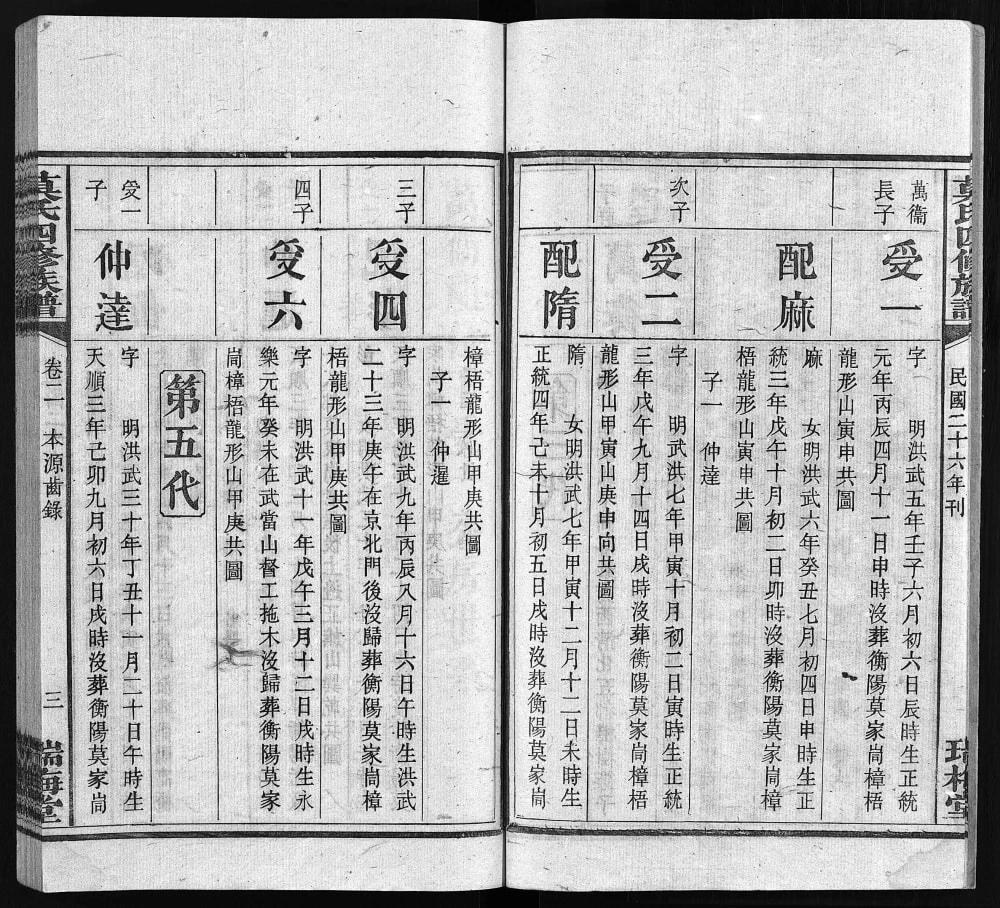 莫氏四修族譜
民國二十六年刊
萬衞
長子
受一
字　明洪武五年壬子六月初六日辰時生正統
元年丙辰四月十一日申時沒葬衡陽莫家崗樟梧
龍形山寅申共圖
配麻
麻　女明洪武六年癸丑七月初四日申時生正
統三年戊午十月初二日卯時沒葬衡陽莫家崗樟
梧龍形山寅申共圖
子一　仲達
次子
受二
字　明武洪七年甲寅十月初二日寅時生正統
三年戊午九月十四日戌時沒葬衡陽莫家崗樟梧
龍形山甲寅山庚申向共圖
配隋
隋　女明洪武七年甲寅十二月十二日未時生
正統四年己未十月初五日戌時沒葬衡陽莫家崗
樟梧龍形山甲庚共圖
子一　仲暹
三子
受四
字　明洪武九年丙辰八月十六日午時生洪武
二十三年庚午在京北門後沒歸葬衡陽莫家崗樟
梧龍形山甲庚共圖
四子
受六
字　明洪武十一年戊午三月十二日戌時生永
樂元年癸未在武當山督工拖木沒歸葬衡陽莫家
崗樟梧龍形山甲庚共圖
第五代
受一
子
仲達
字　明洪武三十年丁丑十一月二十日午時生
天順三年己卯九月初六日戌時沒葬衡陽莫家崗
莫氏四修族譜
卷二　本源齒錄
三